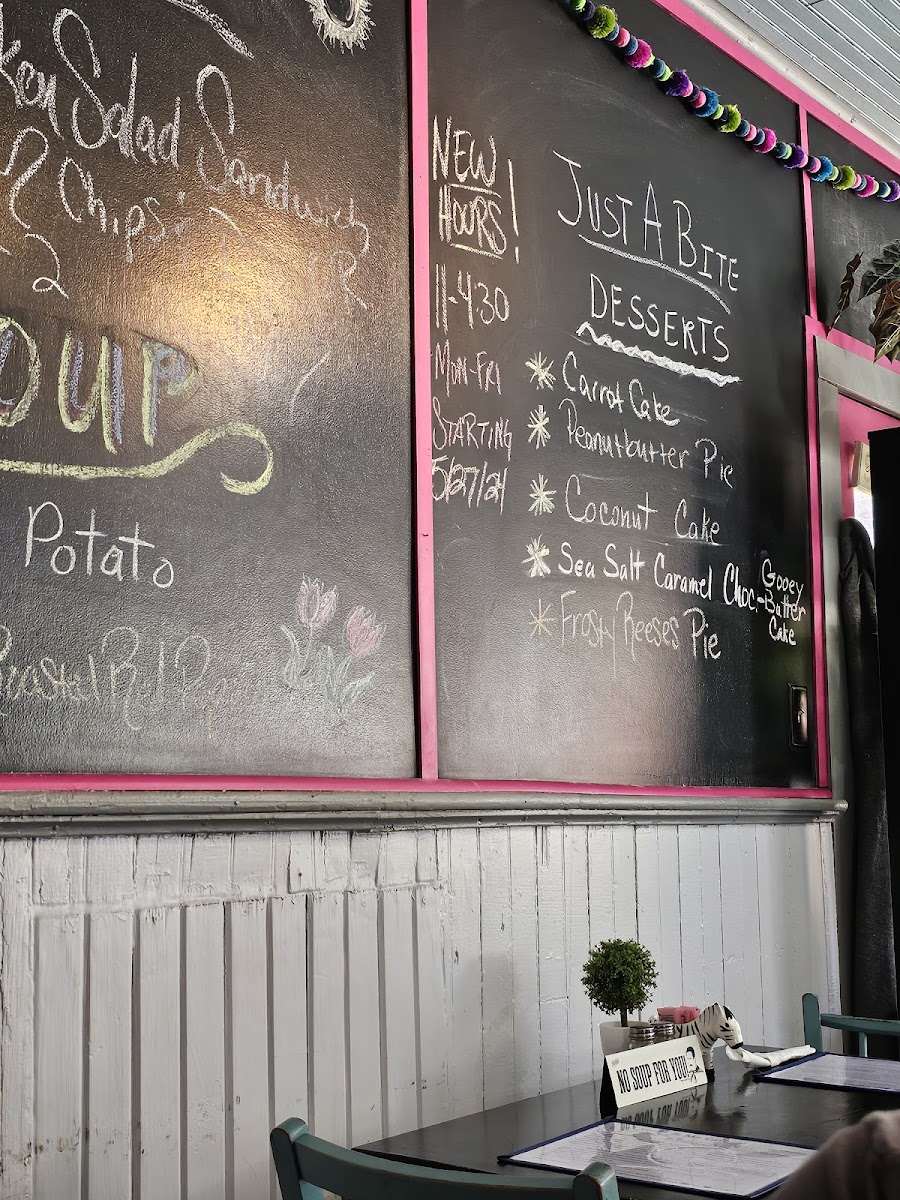 Salad Sandwich
Chips
2
OUP
Potato
NEW
HOURS!
11-4:30
MON-FRI
STARTING
5/27/24
JUST A BITE
DESSERTS
Carrot Cake
Peanutbutter Pie
Coconut Cake
Sea Salt Caramel Choc.-Gooey
Butter
Cake
Frosty Reeses Pie
NO SOUP FOR YOU!